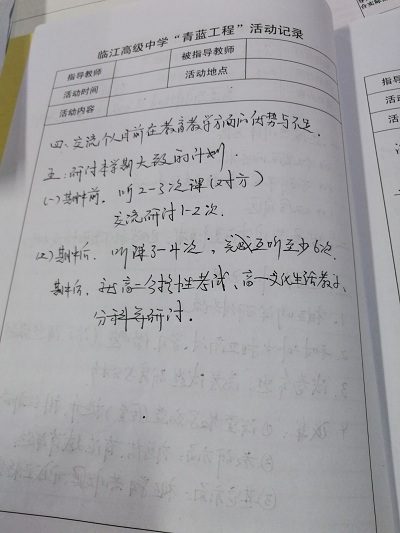 临江高级中学“青蓝工程”活动记录
指导教师 被指导教师
活动时间 活动地点
活动内容
四、交流个人目前在教育教学方面的优势与不足.
五:研讨本学期大致的计划.
(一)期中前. 听2-3次课(对方)
交流研讨1-2次.
(二)期中后. 听课3-4次; 完成互听至少6次.
期中后. 就高二合格性考试、高一文化生活教学、
分科等研讨.
指导
活动
活